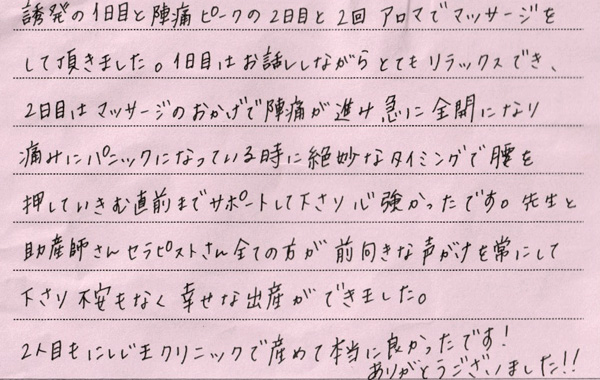 誘発の1日目と陣痛ピークの2日目と2回アロマでマッサージを
して頂きました。1日目はお話ししながらとてもリラックスでき、
2日目はマッサージのおかげで陣痛が進み急に全開になり
痛みにパニックになっている時に絶妙なタイミングで腰を
押していきむ直前までサポートして下さり心強かったです。先生と
助産師さんセラピストさん全ての方が前向きな声がけを常にして
下さり不安もなく幸せな出産ができました。
2人目もにしじ王クリニックで産めて本当に良かったです!
ありがとうございました!!